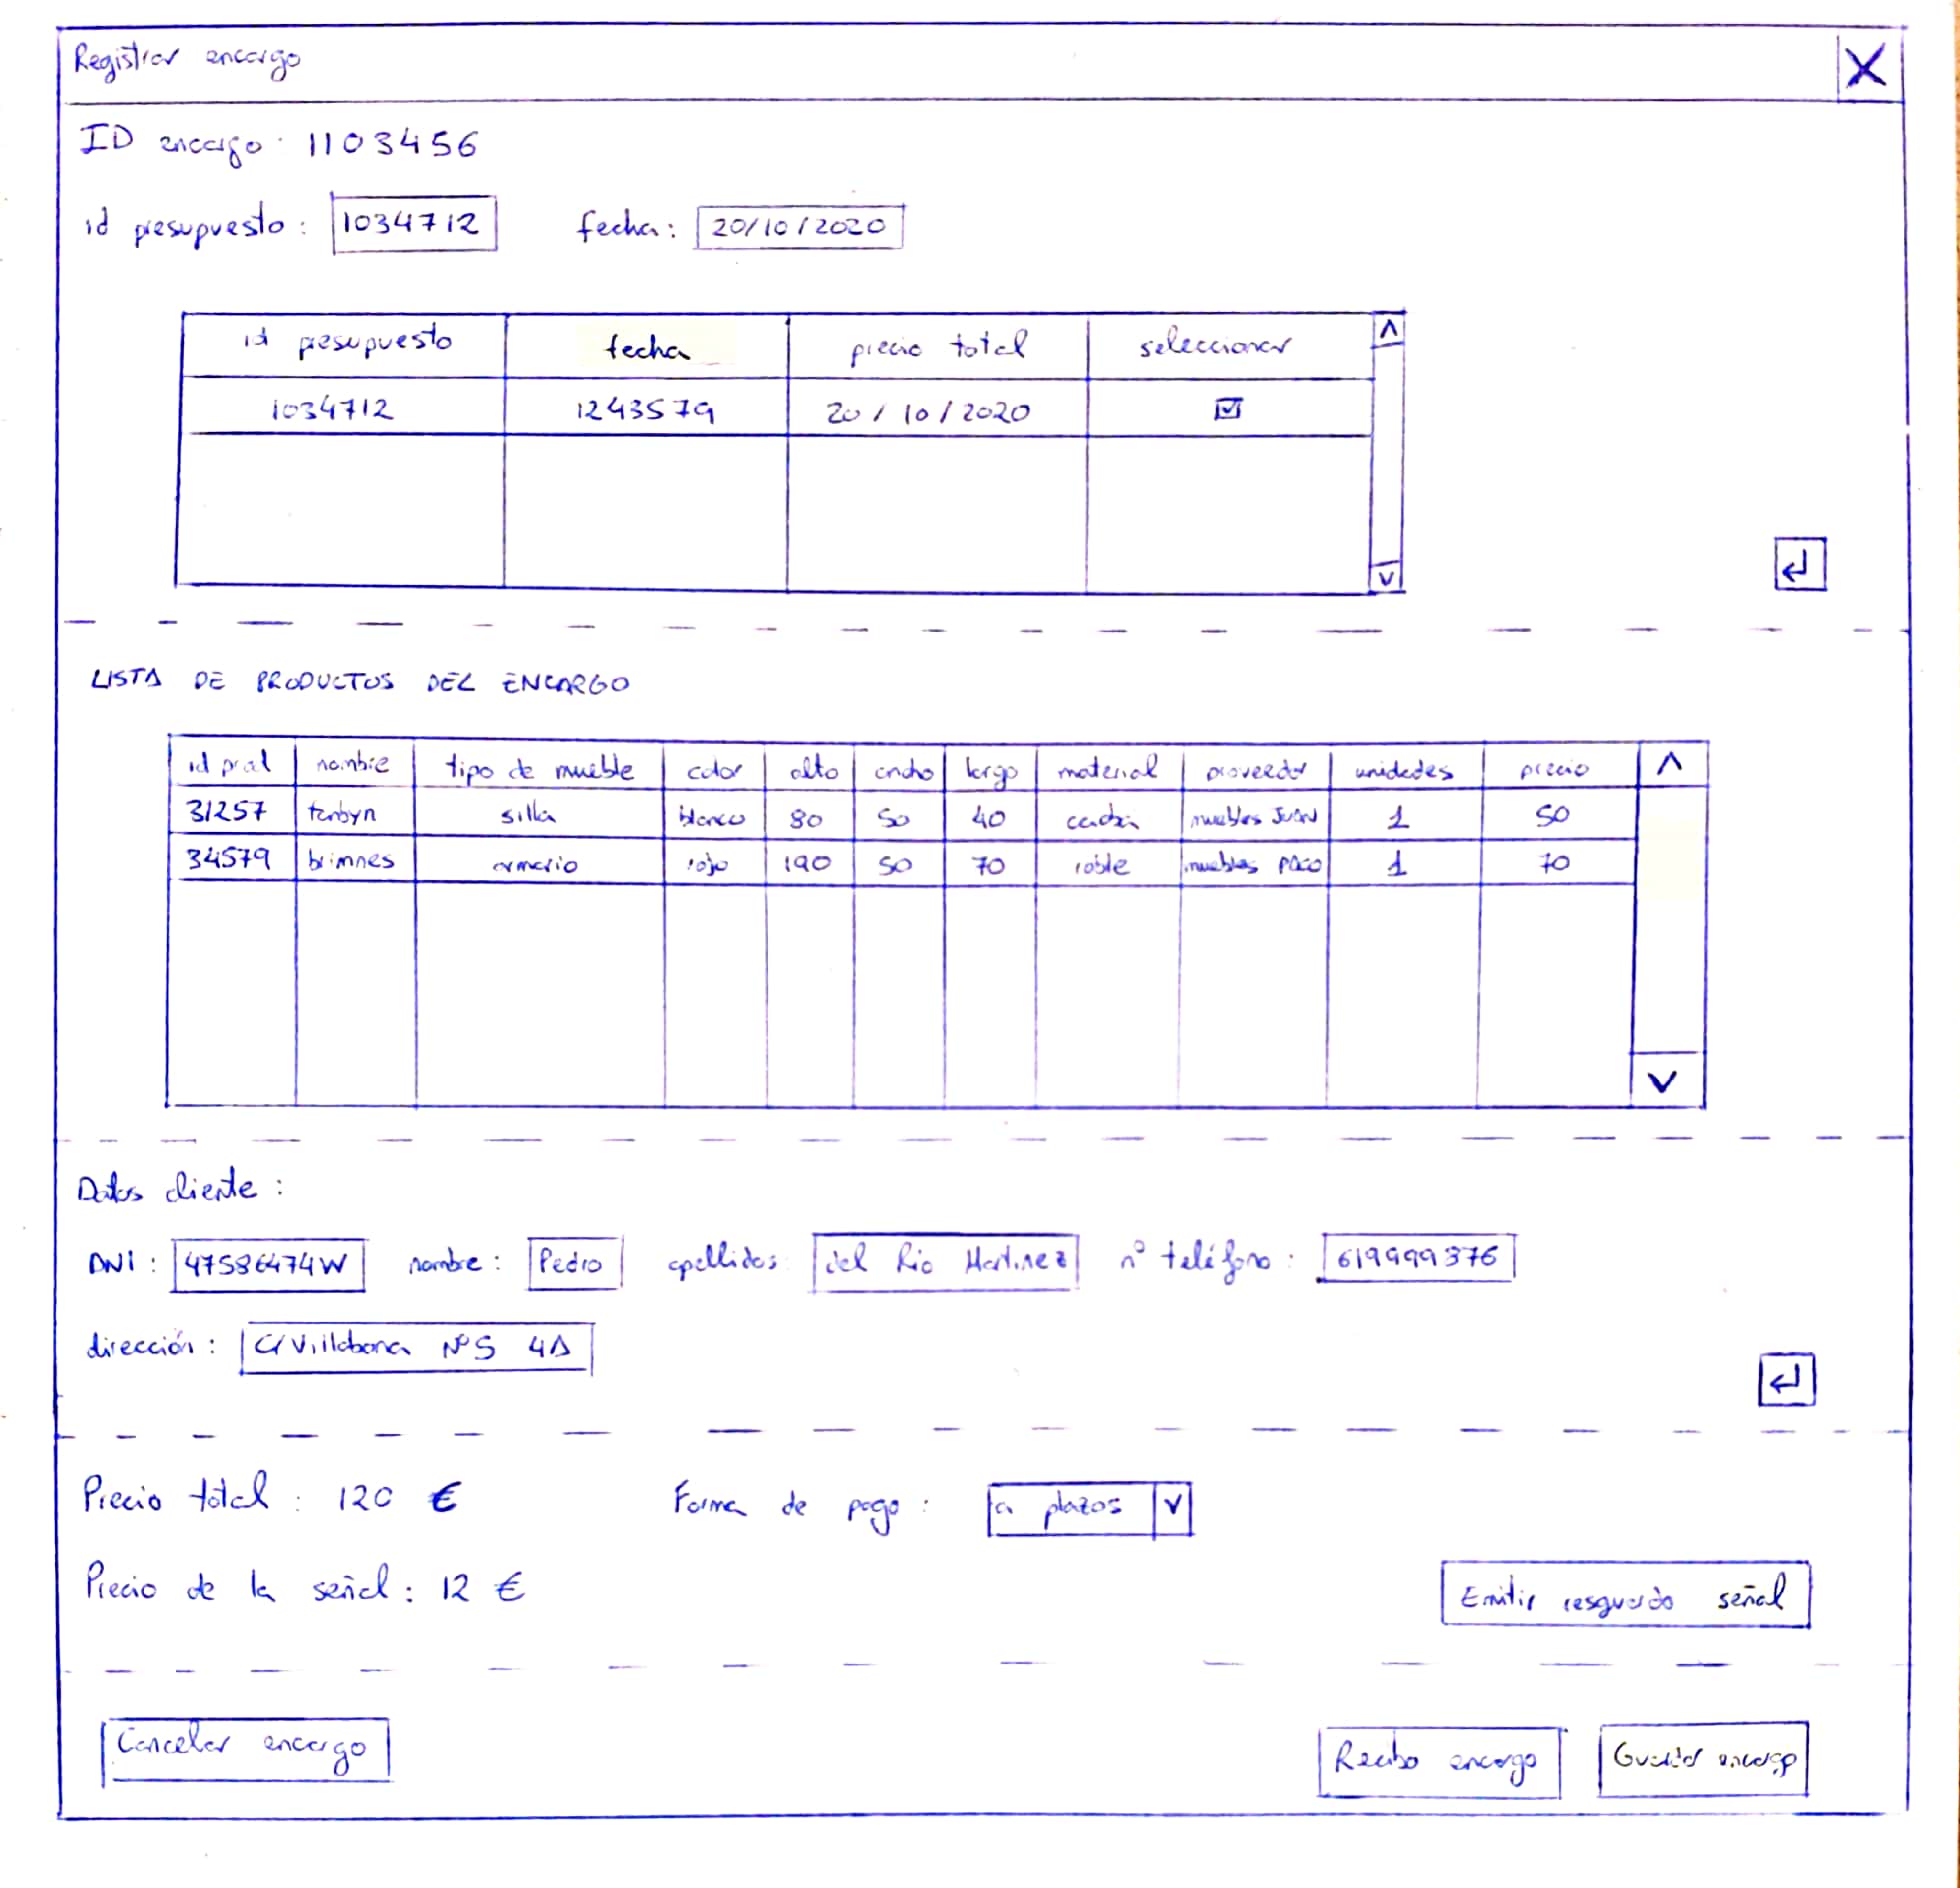 Registrar encargo X
ID encargo: 1103456
id presupuesto: 1034712 fecha: 20/10/2020
id presupuesto fecha precio total seleccionar
1034712 1243579 20/10/2020
LISTA DE PRODUCTOS DEL ENCARGO
id prod nombre tipo de mueble color alto ancho largo material proveedor unidades precio
31257 tenbyn silla blanco 80 50 40 caoba muebles JUAN 1 50
34579 brimnes armario rojo 190 50 70 roble muebles PACO 1 70
Datos cliente:
DNI: 47586474W nombre: Pedro apellidos: del Rio Martinez nº teléfono: 619999376
dirección: C/Villabona Nº5 4A
Precio total: 120 € Forma de pago: a plazos
Precio de la señal: 12 €
Emitir resguardo señal
Cancelar encargo Recibo encargo Guardar encargo